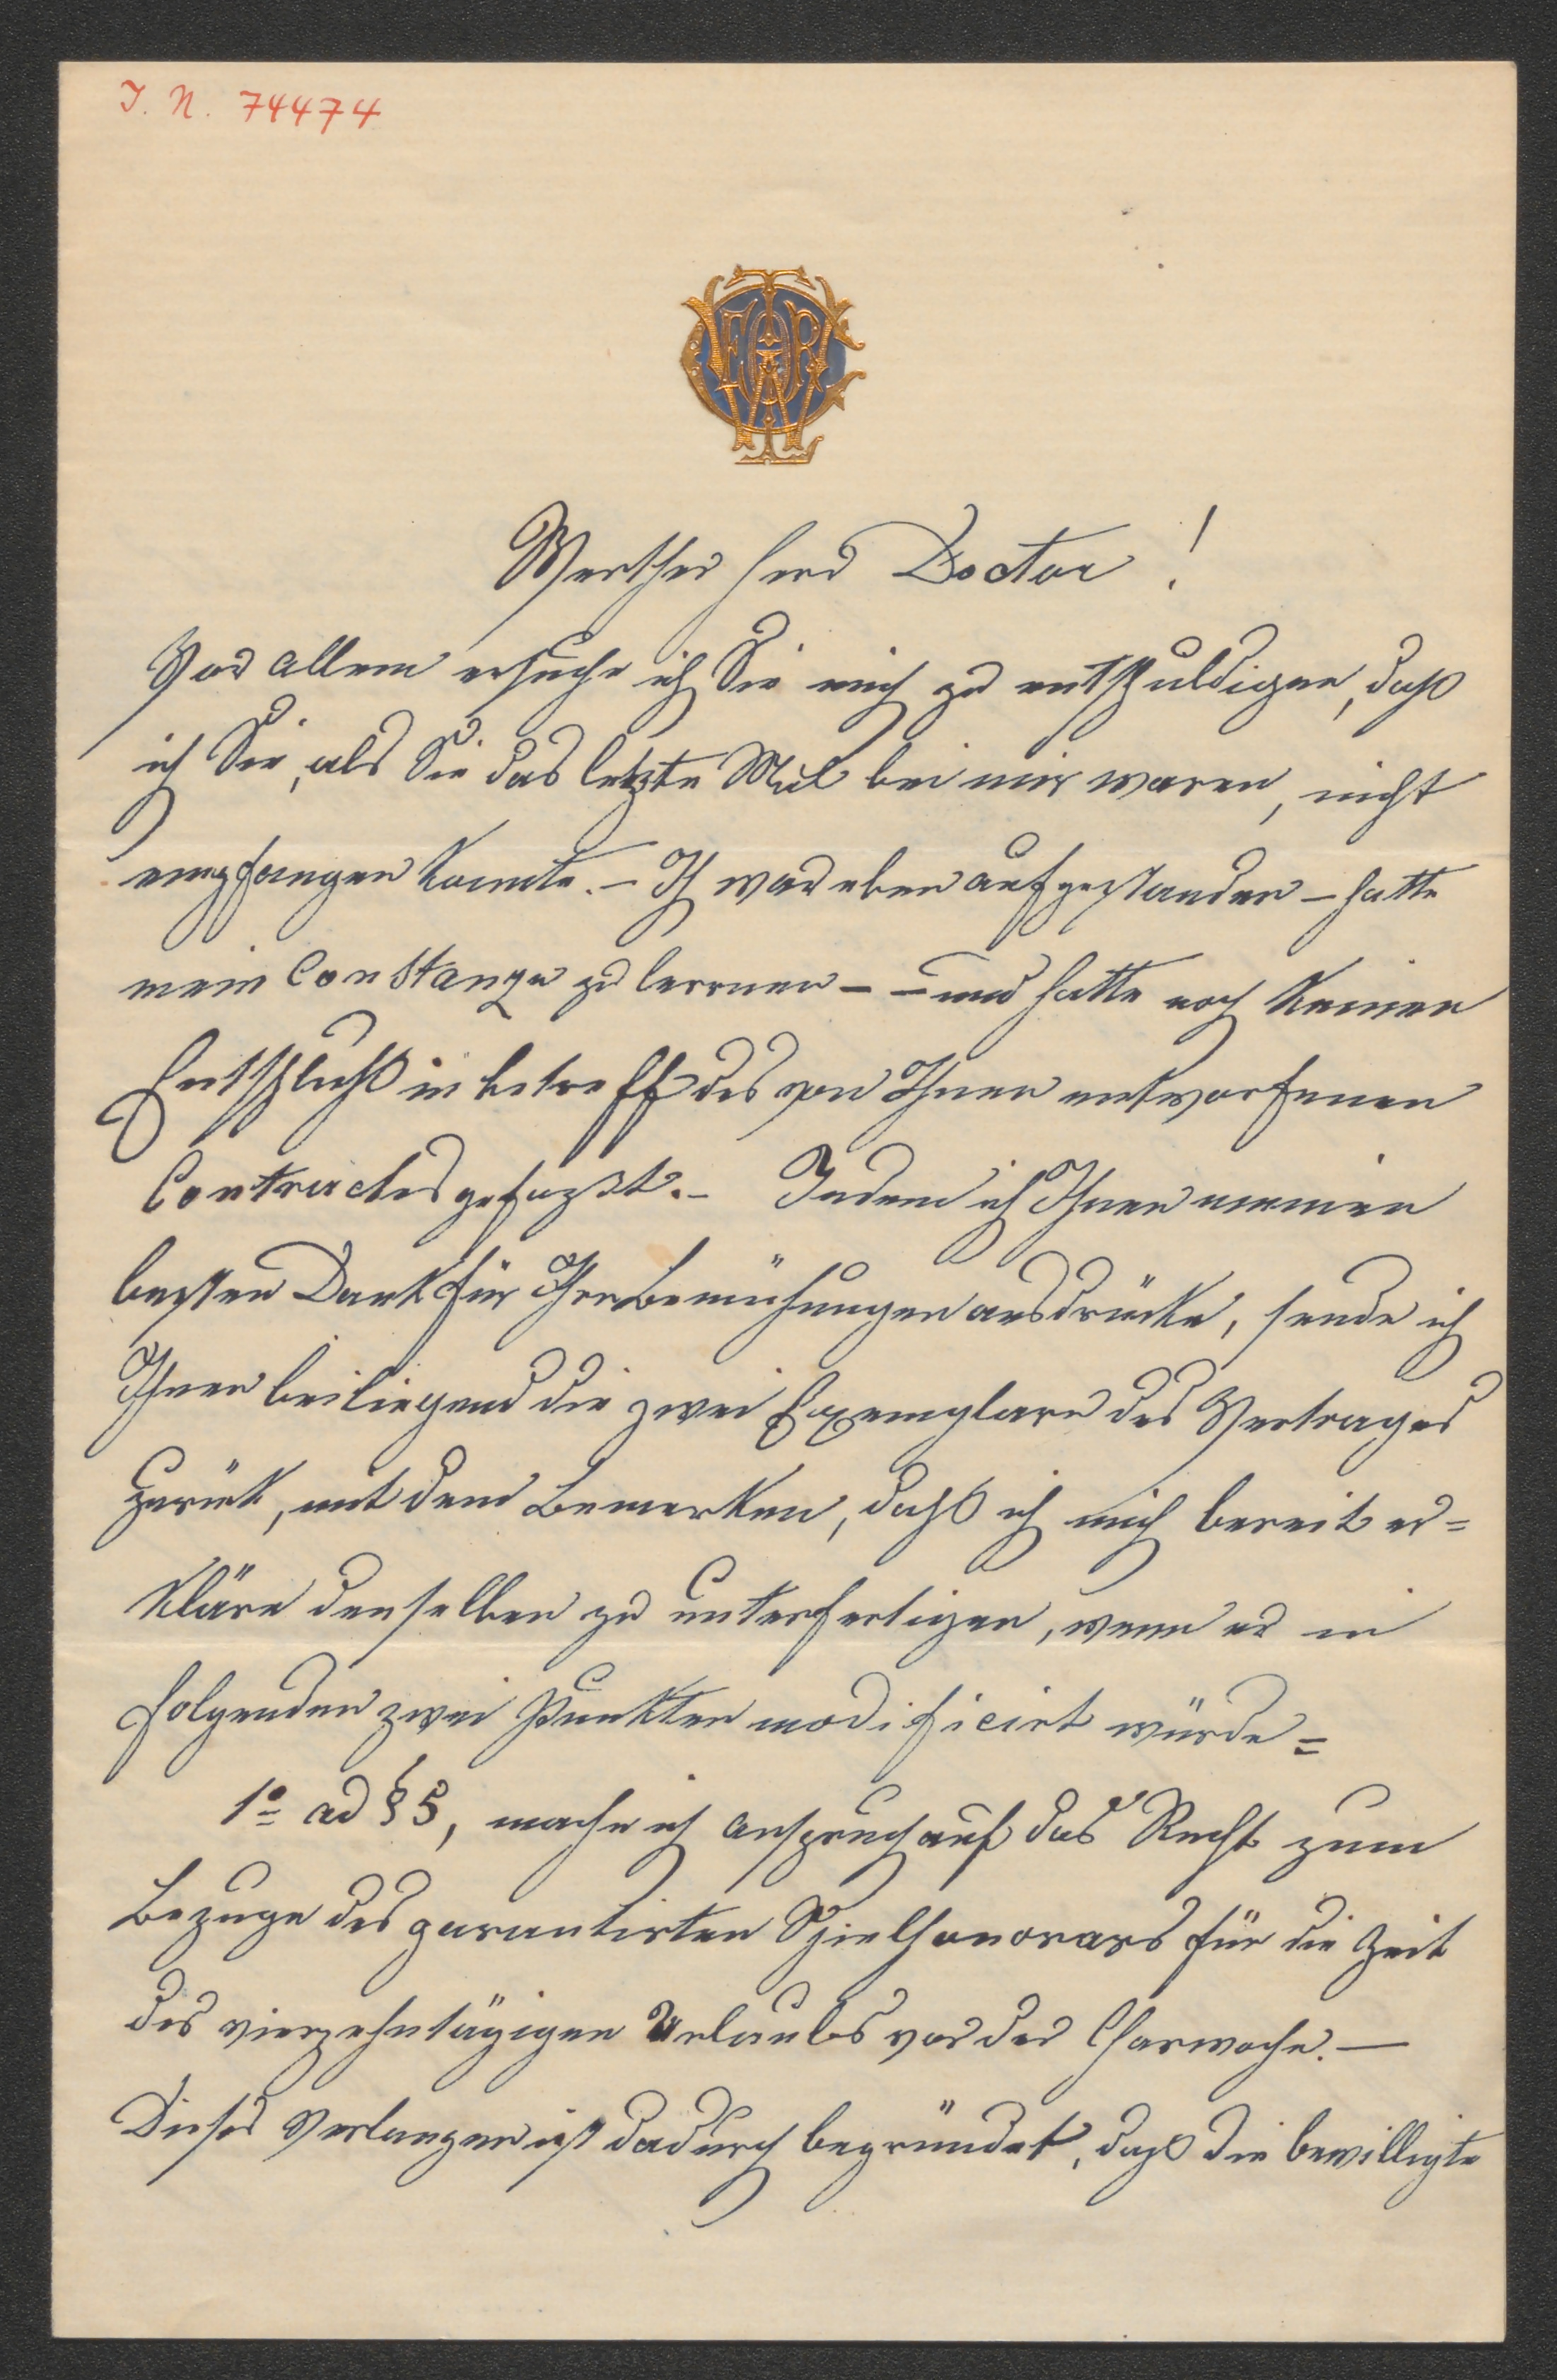 I. N. 74474
Werther Herr Doctor!
Vor allem ersuche ich Sie mich zu entschuldigen, daß
ich Sie, als Sie das letzte Mal bei mir waren, nicht
empfangen konnte. – Ich war eben aufgestanden – hatte
mein Constanze zu lernen – – und hatte noch keinen
Entschluß in betreff des von Ihnen entworfenen
Contractes gefaßt. – Indem ich Ihnen meinen
besten Dank für Ihre Bemühungen ausdrücke, sende ich
Ihnen beiliegend die zwei Exemplare des Vertrages
zurük, mit dem Bemerken, daß ich mich bereit er=
kläre denselben zu unterfertigen, wenn er in
folgenden zwei Punkten modificirt würde =
1º ad § 5, mache ich Anspruch auf das Recht zum
Bezuge des garantirten Spielhonorars für die Zeit
des vierzehntägigen Urlaubs vor der Charwoche. —
Dieses Verlangen ist dadurch begründet, daß die bewilligte